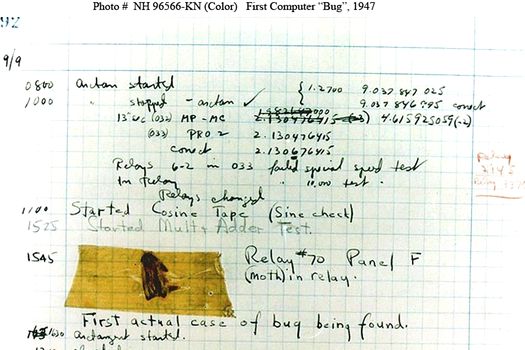 Photo # NH 96566-KN (Color) First Computer "Bug", 1947
92
9/9
0800 antan started
1000 " stopped - antan ✓ { 1.2700 9.037 847 025
9.037 846 795 conect
13"uc (032) MP - MC 2.130476415 (-3) 4.615925059(-2)
(033) PRO 2 2.130476415
conect 2.130676415
Relays 6-2 in 033 failed special speed test
in Relay " 10,000 test .
Relay
2145
Relays changed
1100 Started Cosine Tape (Sine check)
1525 Started Mult + Adder Test.
1545 Relay #70 Panel F
(moth) in relay.
First actual case of bug being found.
1630 antangent started.